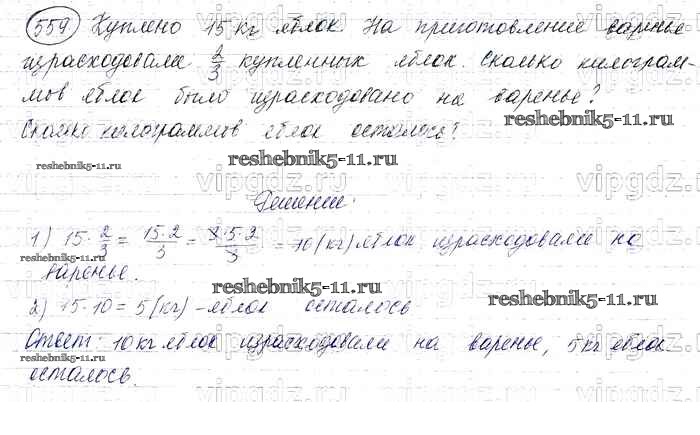 559 Куплено 15 кг яблок. На приготовление варенье
израсходовали 2/3 купленных яблок. Сколько килограм-
мов яблок было израсходовано на варенье?
Сколько килограммов яблок осталось?
reshebnik5-11.ru
reshebnik5-11.ru
reshebnik5-11.ru
vipgdz.ru
Решение:
1) 15·2/3 = 15·2/3 = 3·5·2/3 = 10 (кг) яблок израсходовали на
варенье.
reshebnik5-11.ru
reshebnik5-11.ru
2) 15-10=5 (кг) - яблок осталось
reshebnik5-11.ru
Ответ: 10 кг яблок израсходовали на варенье, 5 кг яблок
осталось.
reshebnik5-11.ru
vipgdz.ru